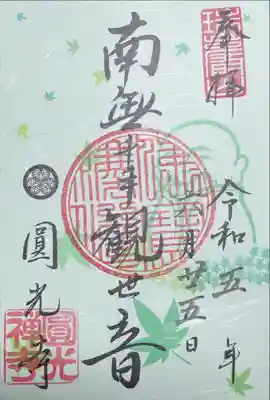 奉拝
令和五年
六月廿五日
南無千手観世音
圓光寺
圓光禪寺